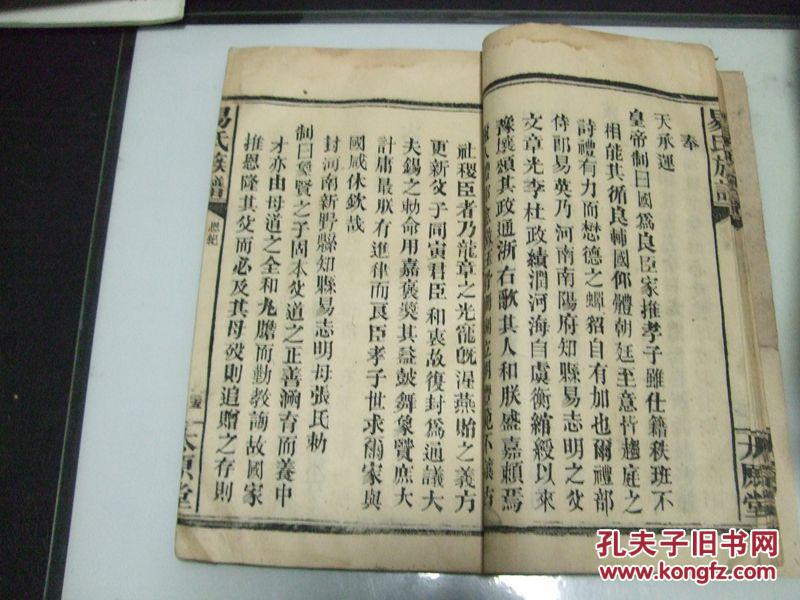 易氏族譜
奉
天承運
皇帝制曰國爲良臣家推孝子雖仕籍秩班不
相能其循良輔國仰體朝廷至意恃趨庭之
詩禮有力而懋德之蟬貂自有加也爾禮部
侍郎易英乃河南南陽府知縣易志明之父
文章光李杜政績潤河海自虞衡綰綬以來
豫壤頌其政通浙右歌其人和朕盛嘉賴焉
社稷臣者乃龍章之光寵旣渥燕貽之義方
更新父子同寅君臣和衷故復封爲通議大
夫錫之勅命用嘉褒獎其益鼓舞象賢庶大
計庸最朕有進律而良臣孝子世求爾家與
國咸休欽哉
封河南新野縣知縣易志明母張氏勅
制曰聖賢之子固本父道之正善涵育而養中
才亦由母道之全和丸膽而勤教誨故國家
推恩隆其父而必及其母歿則追贈之存則
易氏族譜
恩紀
五
太原堂
太原堂
孔夫子旧书网
www.kongfz.com